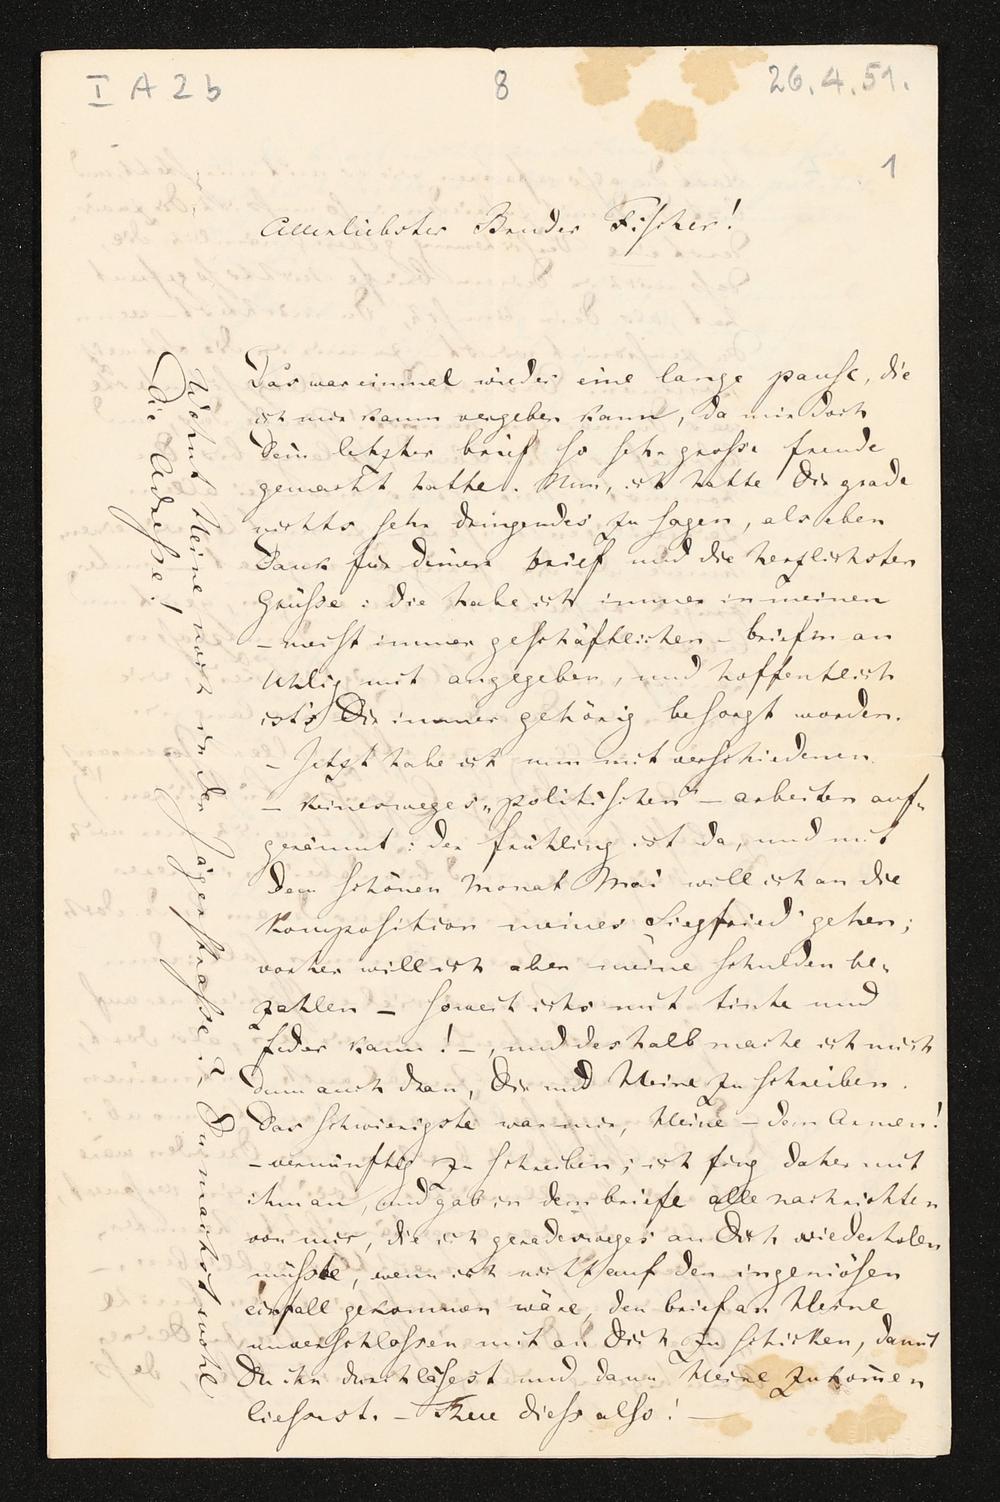 I A 2 b
8
26.4.51.
1
Allerliebster Bruder Fischer!
Das war einmal wieder eine lange pause, die
ich mir kaum vergeben kann, da mir doch
Dein letzter brief so sehr große freude
gemacht hatte. Nun, ich hatte Dir grade
nichts sehr dringendes zu sagen, als eben
Dank für Deinen brief und die herzlichsten
Grüße: die habe ich immer in meinen
– meist immer geschäftlichen – briefen an
Uhlig mit angegeben, und hoffentlich
ist's Dir immer gehörig besorgt worden.
– Jetzt habe ich nun mit verschiedenen
– keinesweges „politischen" – arbeiten auf-
geräumt: der frühling ist da, und mit
dem schönen Monat Mai will ich an die
Komposition meines „Siegfried" gehen;
vorher will ich aber meine schulden be-
zahlen – soweit ichs mit tinte und
feder kann! –, und deshalb mache ich mich
denn auch dran, Dir und Heine zu schreiben.
Das schwierigste war mir, Heine – dem Armen!
– vernünftig zu schreiben; ich fing daher mit
ihm an, und gab in dem briefe alle nachrichten
von mir, die ich geradesweges an Dich wiederholen
müßte, wenn ich nicht auf den ingeniösen
einfall gekommen wäre, den brief an Heine
unverschlossen mit an Dich zu schicken, damit
Du ihn durchläsest und dann Heine zukom̅en
ließest. – Thue dieß also! –
Wohnt Heine noch in der Jägerstraße? Du machst wohl
die Adresse!